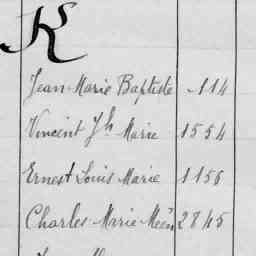 K
Jean Marie Baptiste 114
Vincent Jh Marie 1554
Ernest Louis Marie 1156
Charles Marie 2845